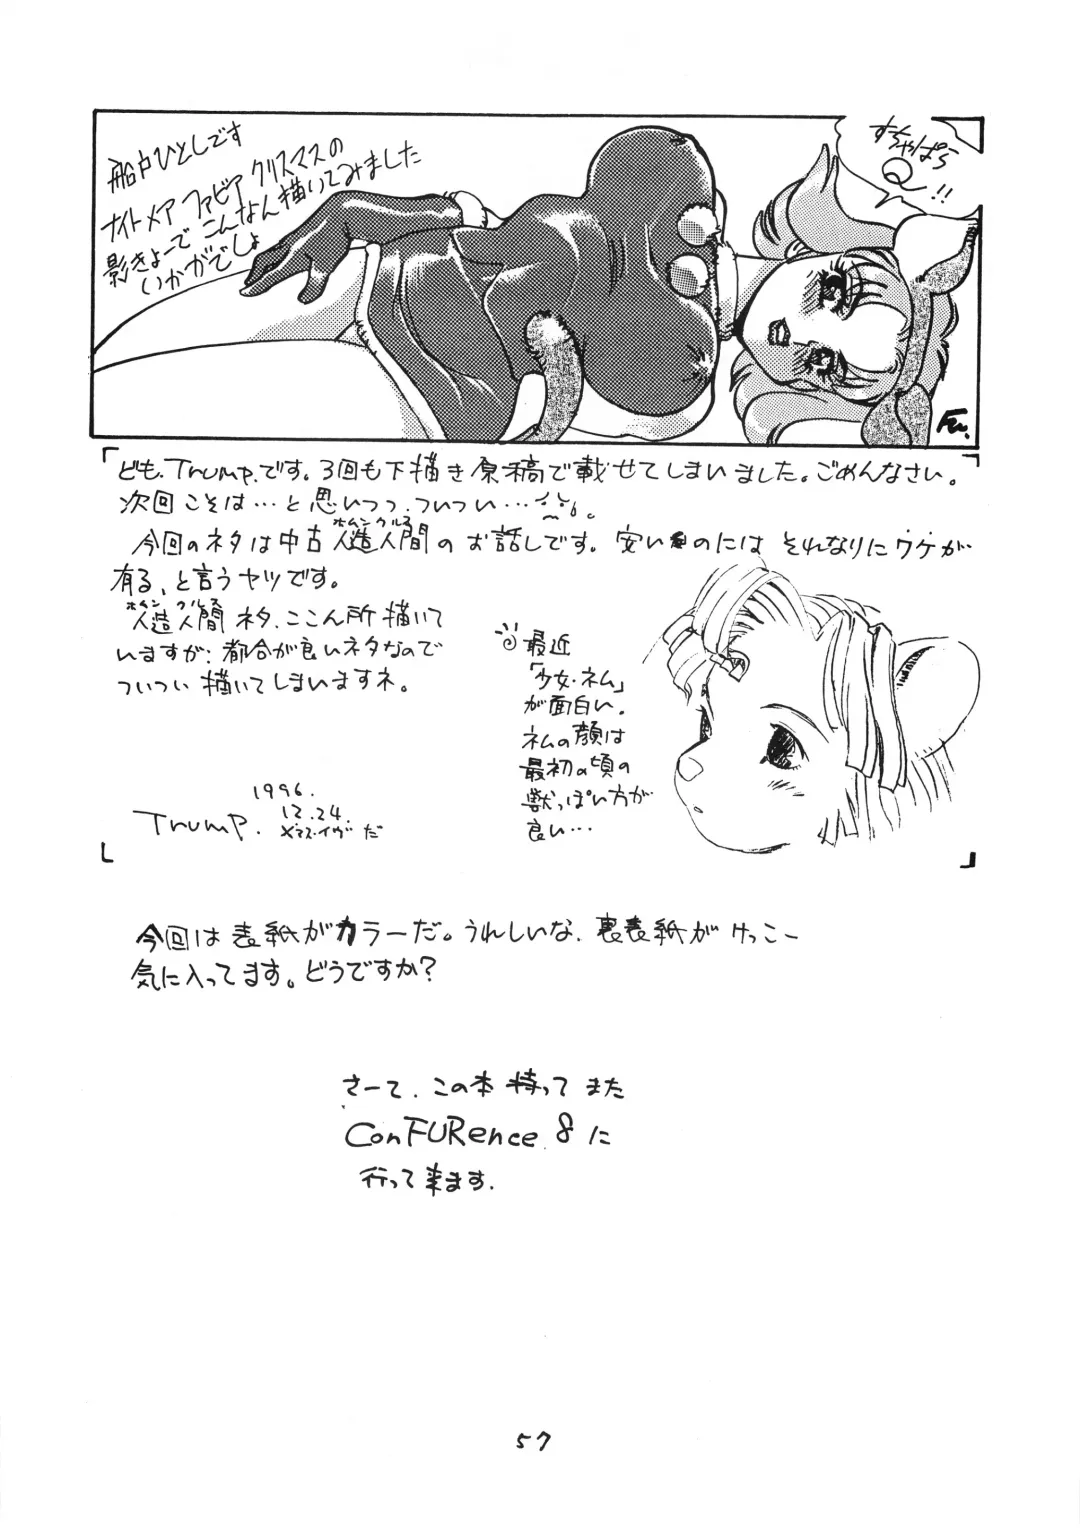 船戸ひとしです
ナイトメア ファビア クリスマスの
影きょーで こんなん描いてみました
いかがでしょ
すちゃぱら
!!
Fu.
「ども、Trump.です。3回も下描き原稿で載せてしまいました。ごめんなさい。
次回こそは…と思いつつ、ついつい…
ホムンクルス
今回のネタは中古人造人間のお話しです。安いものには それなりにワケが
有る、と言うヤツです。
ホムンクルス
人造人間ネタ、ここん所描いて
いますが、都合が良いネタなので
ついつい描いてしまいますネ。
最近
「少女・ネム」
が面白い。
ネムの顔は
最初の頃の
獣っぽい方が
良い…
1996.
12.24.
Trump. X'マス・イヴだ
」
今回は表紙がカラーだ。うれしいな、裏表紙がけっこー
気に入ってます。どうですか?
さーて、この本持ってまた
ConFURence 8 に
行って来ます.
57